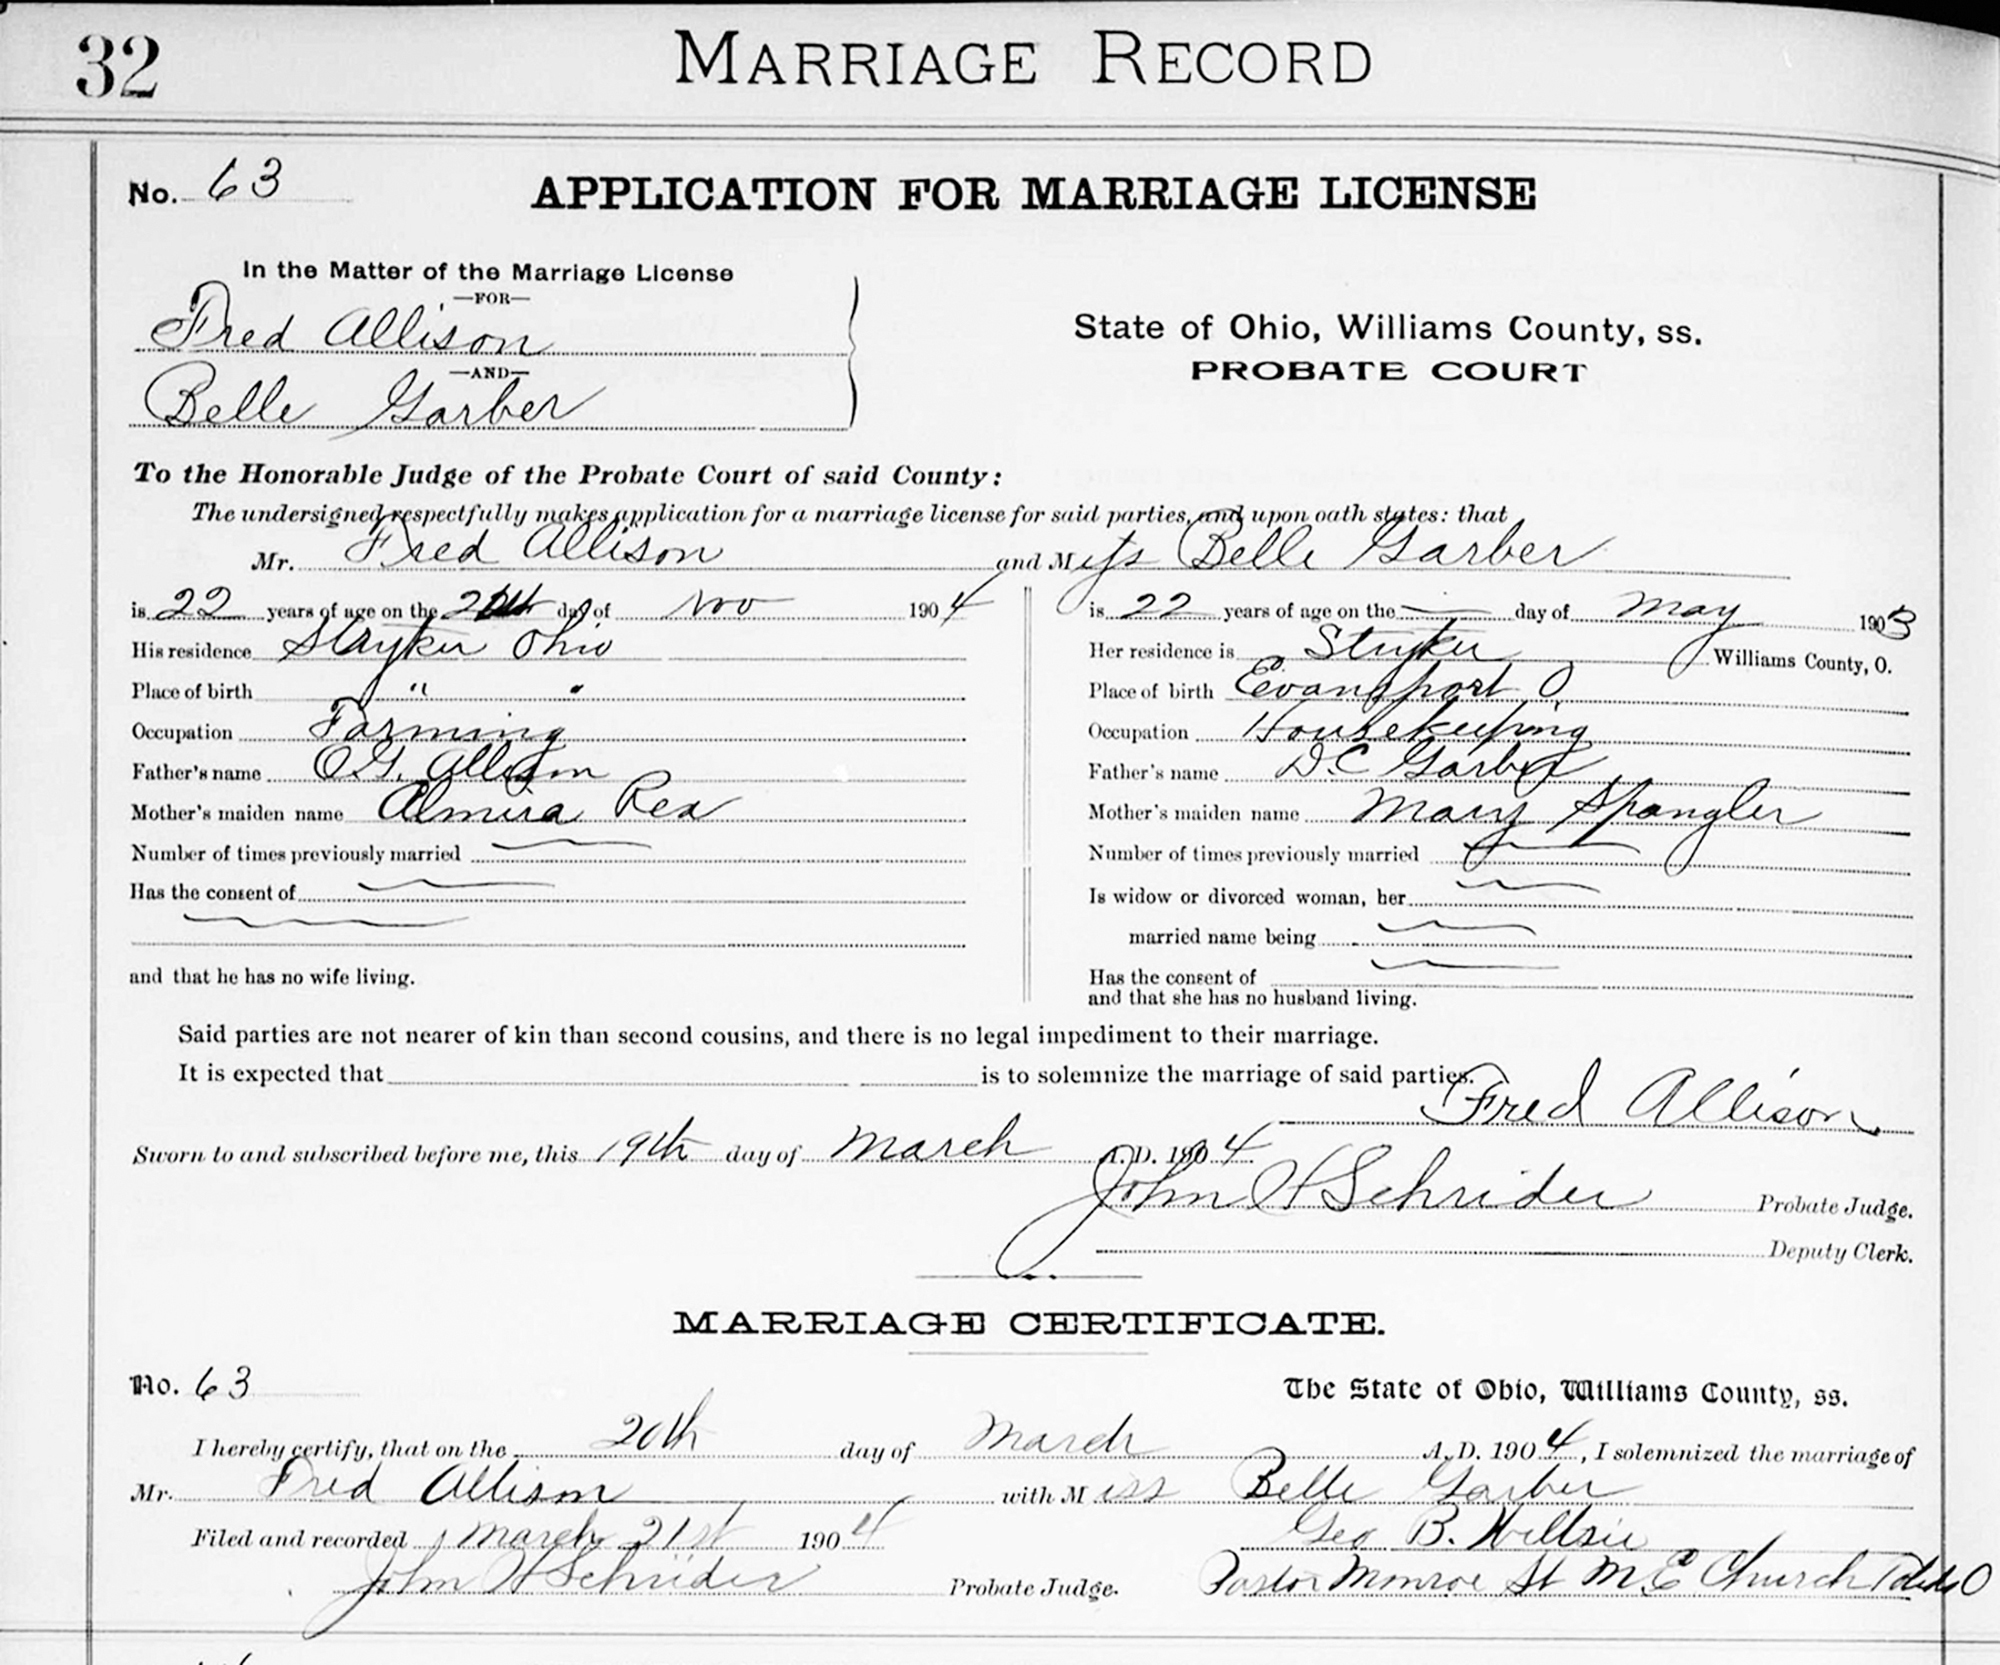 32 MARRIAGE RECORD
No. 63 APPLICATION FOR MARRIAGE LICENSE
In the Matter of the Marriage License
—FOR—
Fred Allison
—AND—
Belle Garber
State of Ohio, Williams County, ss.
PROBATE COURT
To the Honorable Judge of the Probate Court of said County:
The undersigned respectfully makes application for a marriage license for said parties, and upon oath states: that
Mr. Fred Allison and Miss Belle Garber
is 22 years of age on the day of Nov 1904
His residence Stryker Ohio
Place of birth " "
Occupation Farming
Father's name O.G. Allison
Mother's maiden name Almira Rea
Number of times previously married —
Has the consent of —
—
and that he has no wife living.
is 22 years of age on the — day of May 1903
Her residence is Stryker Williams County, O.
Place of birth Evansport O
Occupation Housekeeping
Father's name D.C Garber
Mother's maiden name Mary Spangler
Number of times previously married —
Is widow or divorced woman, her —
married name being —
Has the consent of —
and that she has no husband living.
Said parties are not nearer of kin than second cousins, and there is no legal impediment to their marriage.
It is expected that is to solemnize the marriage of said parties.
Fred Allison
Sworn to and subscribed before me, this 19th day of March A. D. 1904
John H Schrider Probate Judge.
Deputy Clerk.
MARRIAGE CERTIFICATE.
No. 63 The State of Ohio, Williams County, ss.
I hereby certify, that on the 20th day of March A. D. 1904, I solemnized the marriage of
Mr. Fred Allison with Miss Belle Garber
Filed and recorded March 21st 1904 Geo B. Willsie
John H Schrider Probate Judge. Pastor Monroe St M E Church Toledo O